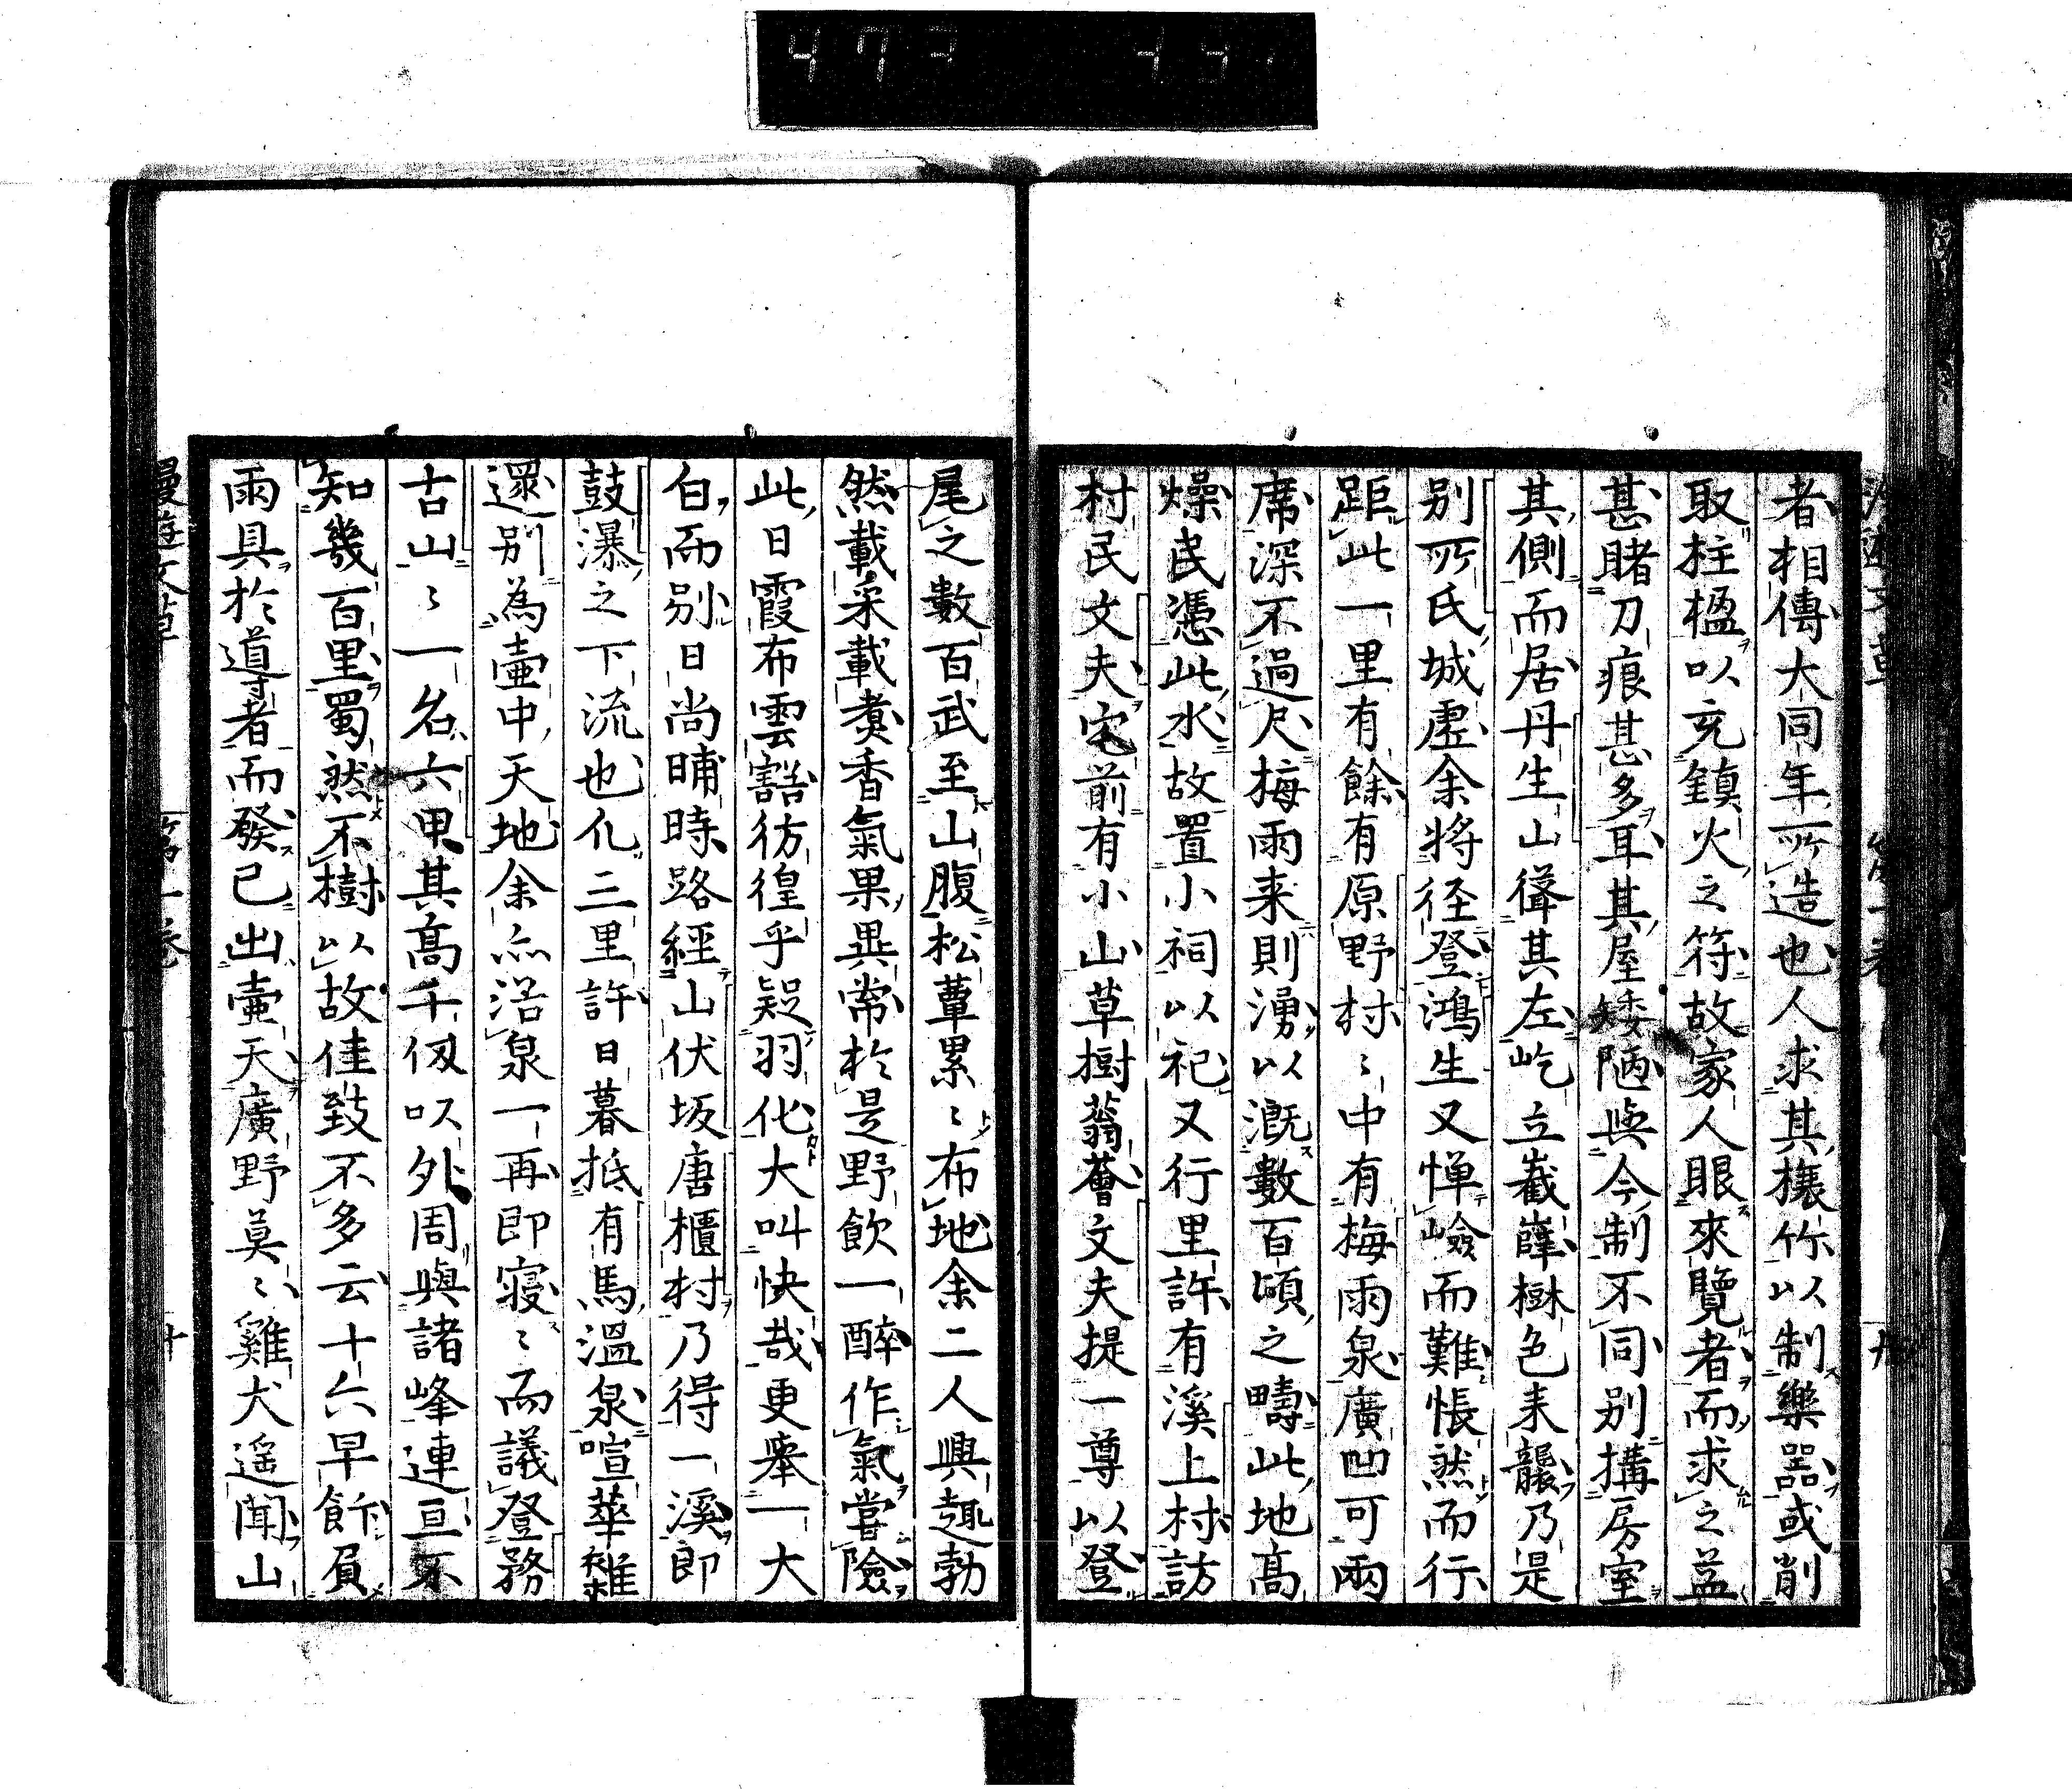 者相傳大同年所造也人求其榱竹以制樂器或削
取柱楹以充鎮火之符故家人眼來覽者而求之益
甚睹刀痕甚多耳其屋矮陋與今制不同別搆房室
其側而居丹生山聳其左屹立巀嶭樹色來襲乃是
別所氏城虛余將徑登鴻生又憚嶮而難悵然而行
距此一里有餘有原野村〻中有梅雨泉廣凹可兩
席深不過尺梅雨来則湧以溉數百頃之疇此地高
燥民憑此水故置小祠以祀又行里許有溪上村訪
村民文夫宅前有小山草樹蓊薈文夫提一尊以登
尾之數百武至山腹松蕈累〻布地余二人興趣勃
然載采載煑香氣果異常於是野飲一醉作氣嘗險
此日霞布雲豁彷徨乎疑羽化大叫快哉更舉一大
白而別日尚晡時路經山伏坂唐櫃村乃得一溪即
鼓瀑之下流也凢三里許日暮抵有馬溫泉喧華雜
還別為壷中天地余亦浴泉一再即寝〻而議登務
古山〻一名六甲其髙千仭以外周與諸峰連亘不
知幾百里蜀然不樹以故佳致不多云十六早飭負
雨具於導者而發已出壷天廣野莫〻雞犬遥聞山
漫遊文草 第一卷 十